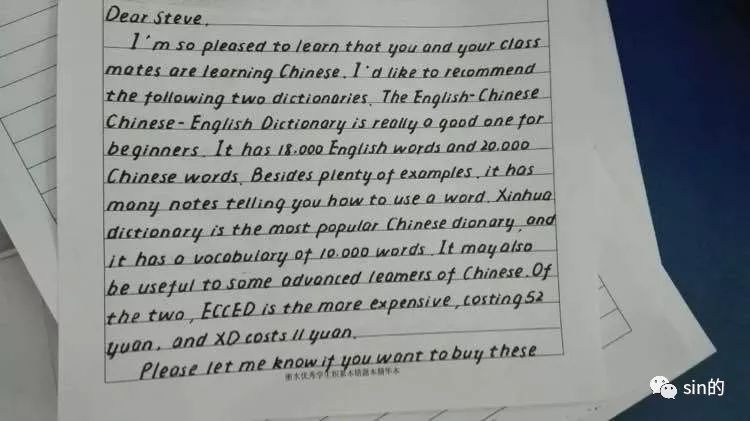 Dear Steve,
I'm so pleased to learn that you and your class
mates are learning Chinese. I'd like to recommend
the following two dictionaries. The English-Chinese
Chinese-English Dictionary is really a good one for
beginners. It has 18.000 English words and 20.000
Chinese words. Besides plenty of examples, it has
many notes telling you how to use a word. Xinhua
dictionary is the most popular Chinese dionary, and
it has a vocabulary of 10.000 words. It may also
be useful to some advanced learners of Chinese. Of
the two, ECCED is the more expensive, costing 52
yuan, and XD costs 11 yuan.
Please let me know if you want to buy these
衡水优秀学生积累本错题本随年本
sin的